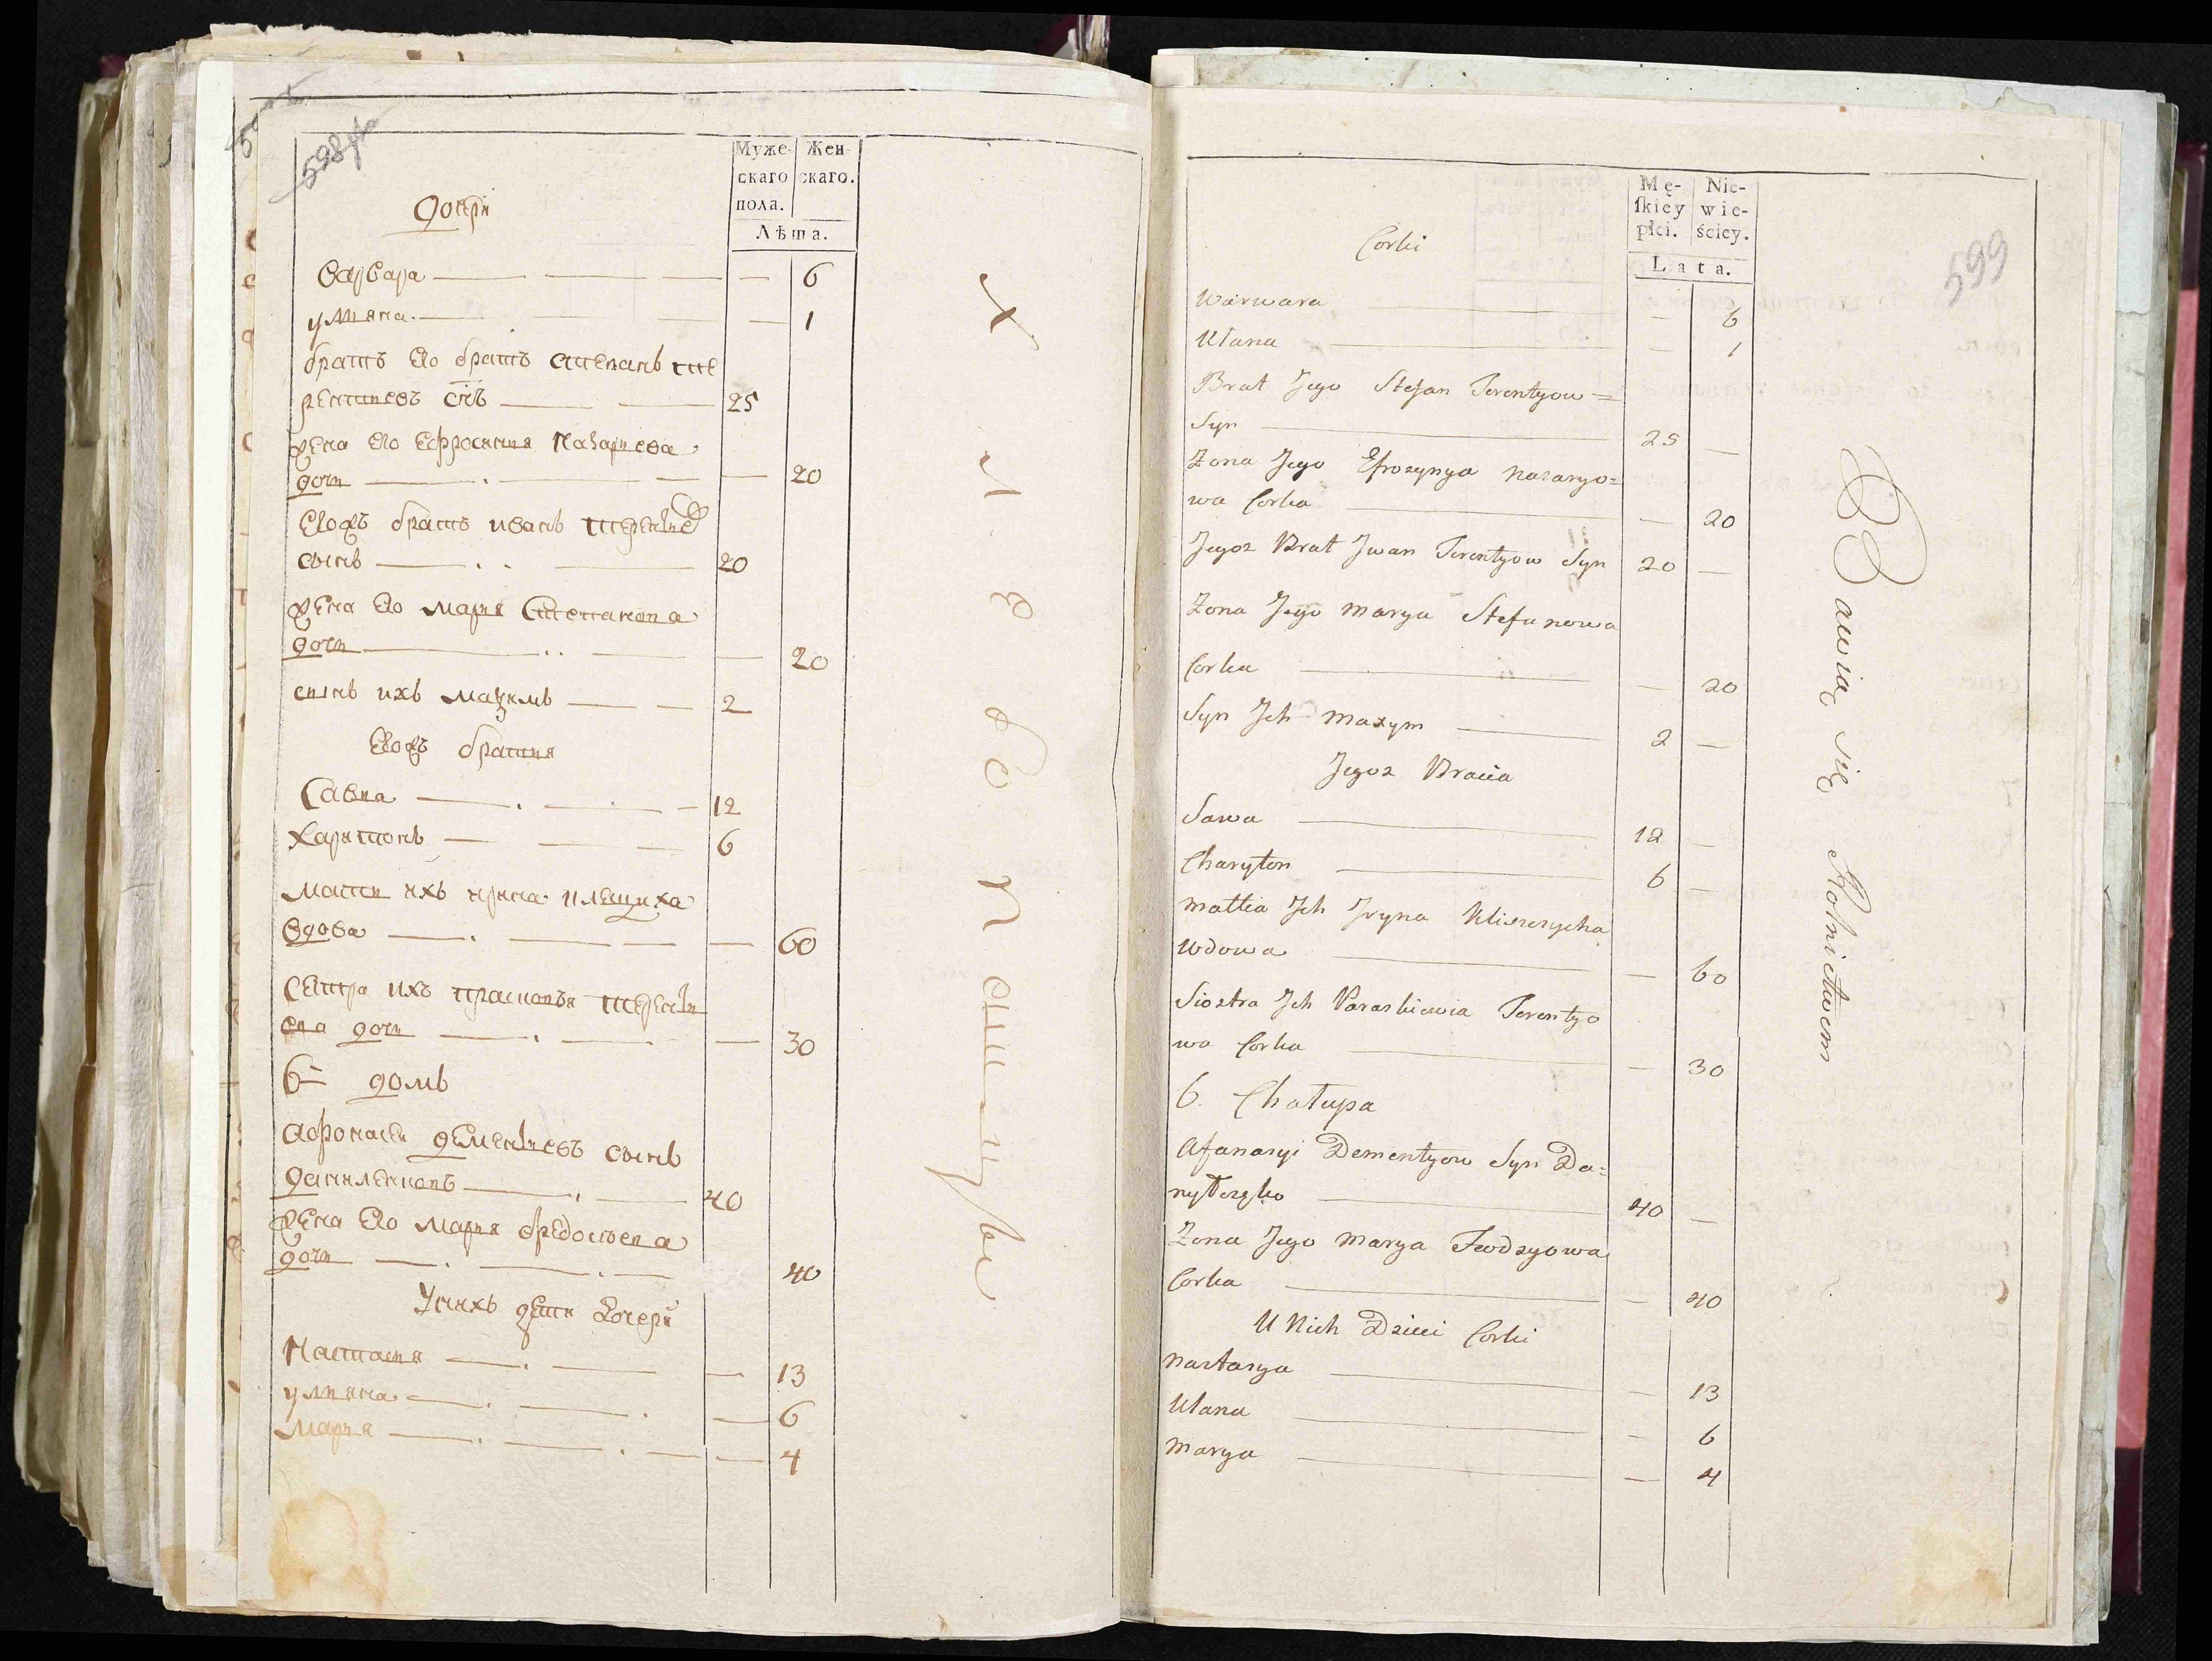 598
Муже-
скаго
пола.
Жен-
скаго.
Лѣта.
дочери
варвара — — 6
улияна — — 1
братъ его братъ степанъ те
рентиевъ снъ — 25
жена его ефросиния назариева
дочи — — 20
егожъ братъ иванъ терентиев
сынъ — 20
жена его мария степанова
дочи — — 20
сынъ ихъ мазимъ — 2
егожъ братия
Савка — 12
харитонъ — 6
мати ихъ ирина клещиха
вдова — — 60
сестра ихъ прасковья терентие
ва дочи — — 30
6 домъ
афонасеи дементиевъ сынъ
данилченко — 40
жена его мария федосиева
дочи — 40
У нихъ дети Дочери
Настасия — — 13
улияна — — 6
мария — — 4
хлѣбопашцы
599
Mę-
ſkiey
płci.
Nie-
wie-
ściey.
Lata.
Corki
Warwara — — 6
Ulana — — 1
Brat Jego Stefan Terentyow=
Syn — 25 —
Zona Jego Efrozynya Nazaryo=
wa Corka — — 20
Jegoz Brat Jwan Terentyow Syn 20 —
Zona Jego Marya Stefanowa
Corka — — 20
Syn Jch Maxym — 2 —
Jegoz Bracia
Sawa — 12 —
Charyton — 6 —
Matka Jch Jryna Kliszczycha
Wdowa — — 60
Siostra Jch Paraskiewia Terentyo
wa Corka — — 30
6. Chałupa
Afanasyi Dementyow Syn Da=
nyłczęko — 40 —
Zona Jego Marya Fedosyowa
Corka — — 40
U Nich Dzieci Corki
Nastasya — — 13
Ulana — — 6
Marya — — 4
Bawią się Rolnictwem